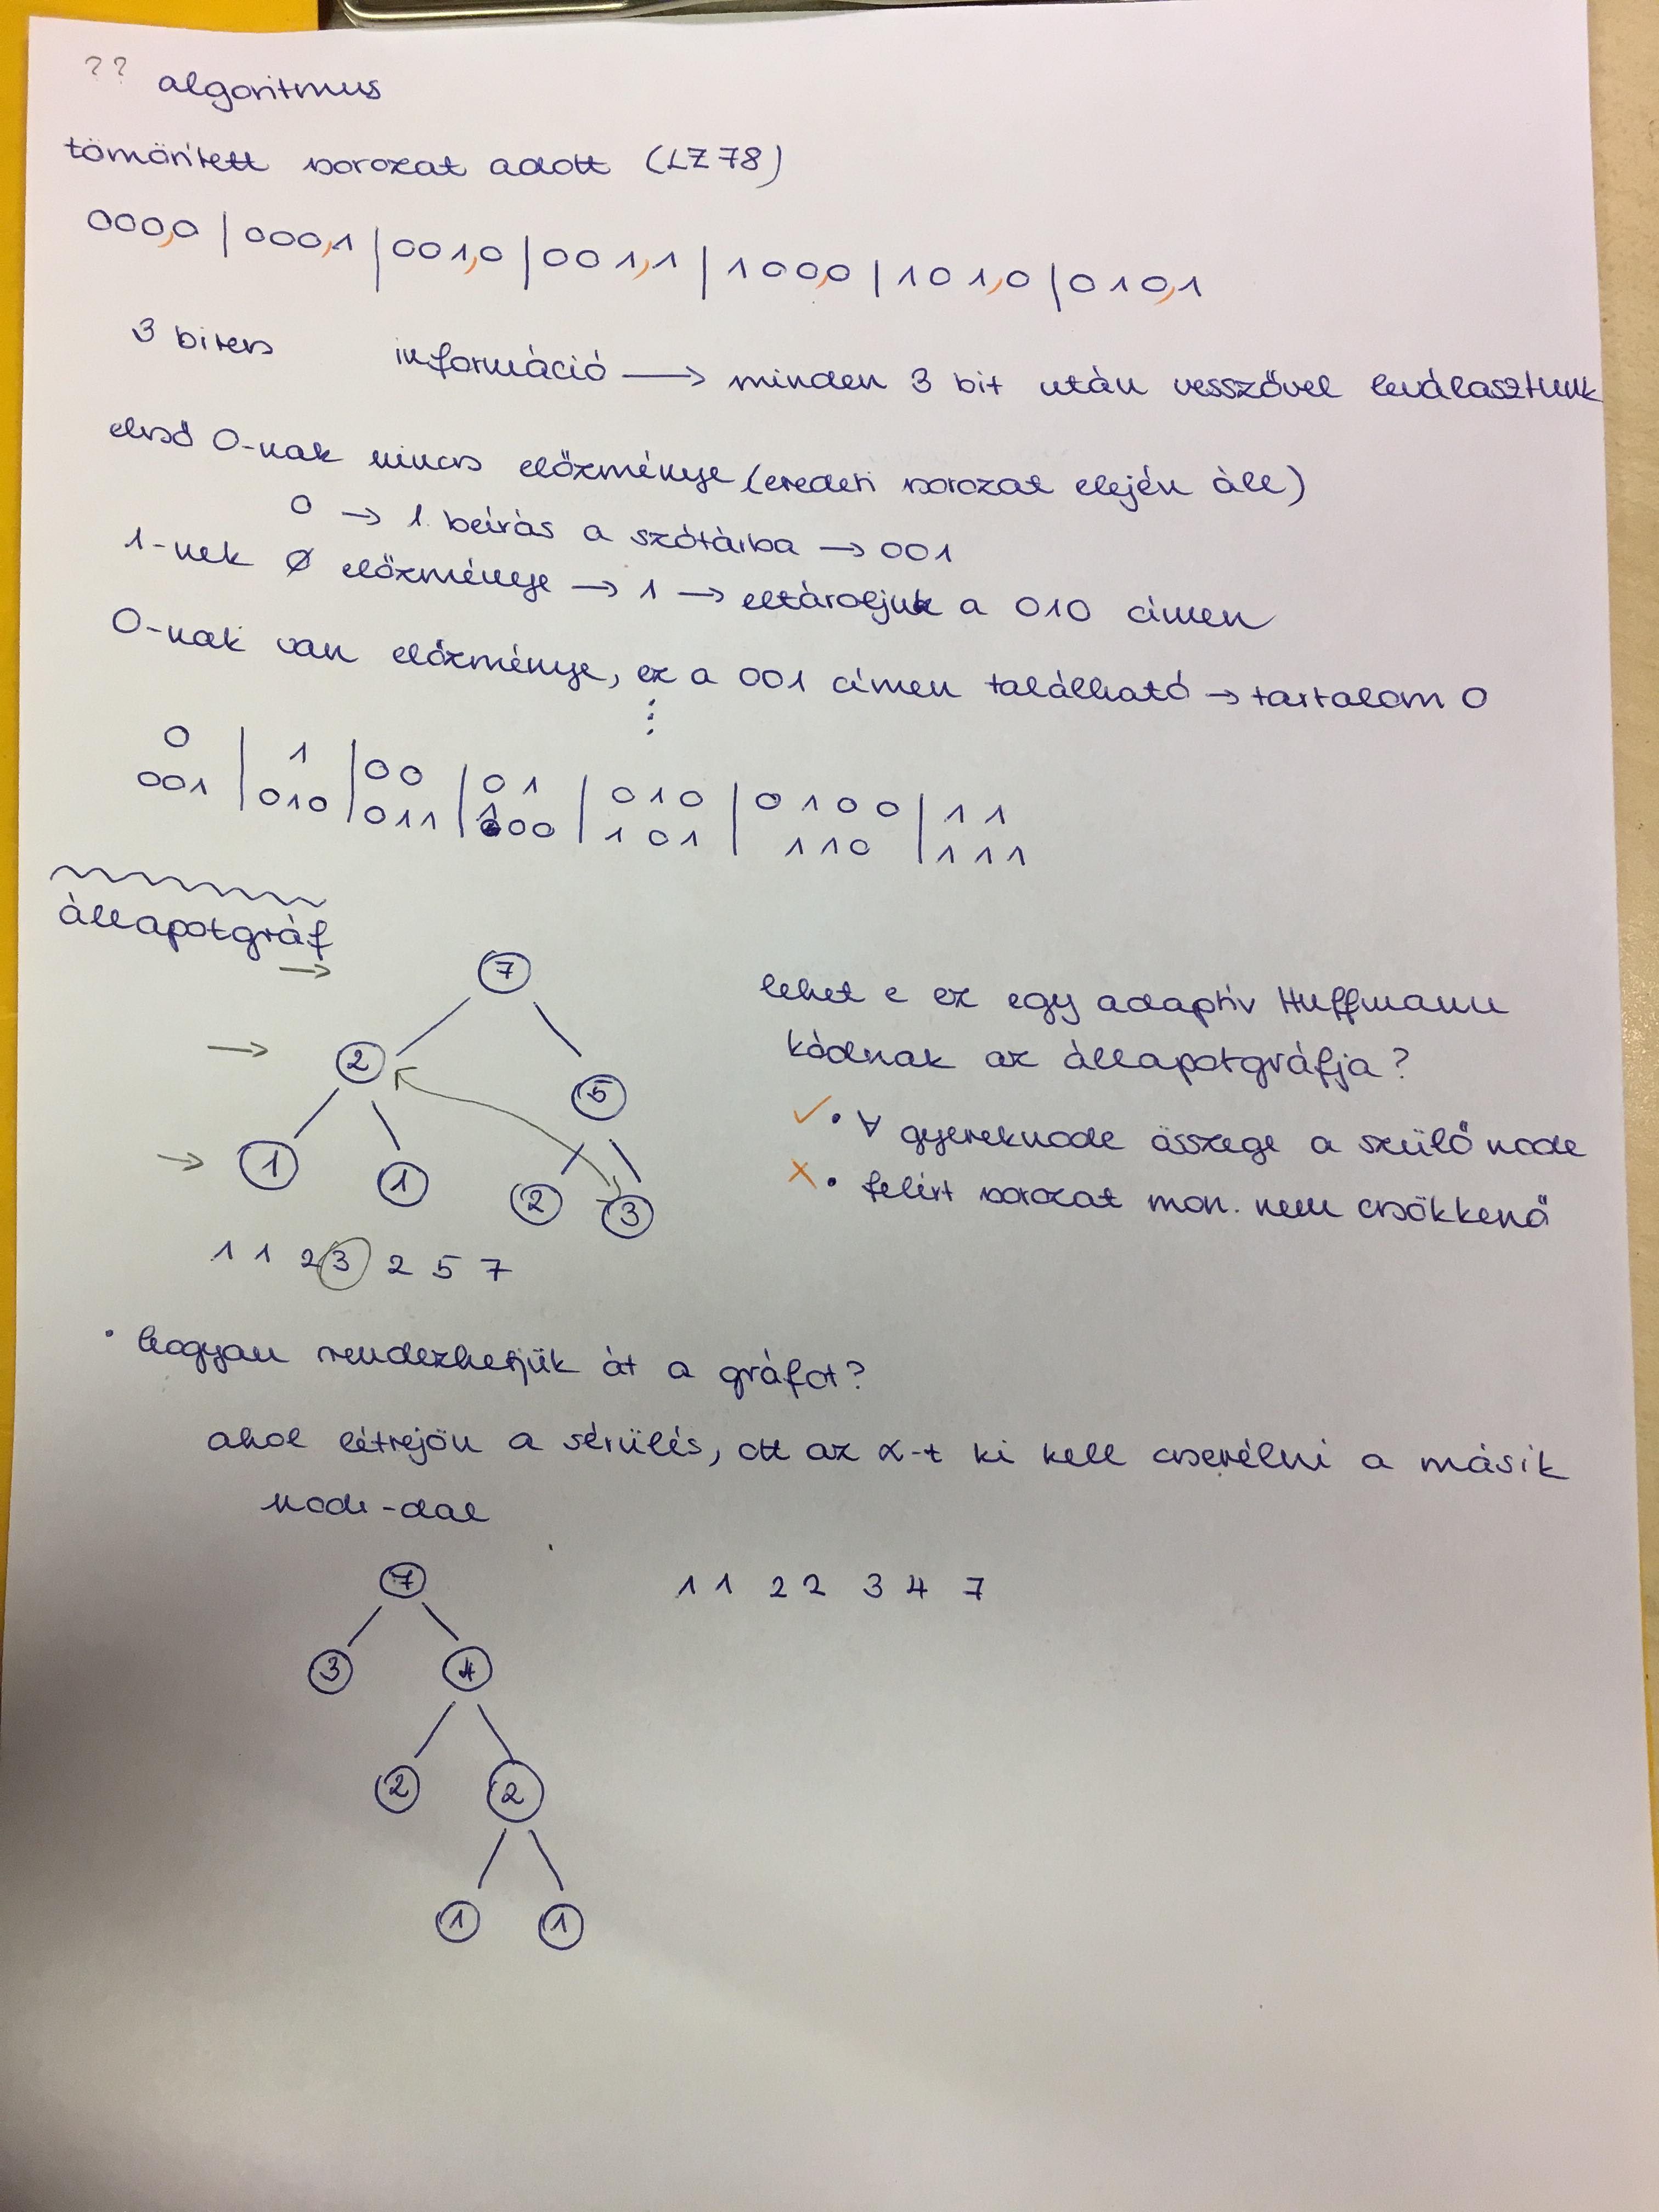 ?? algoritmus
tömörített sorozat adott (LZ78)
000,0 | 000,1 | 001,0 | 001,1 | 100,0 | 101,0 | 010,1
3 bites információ → minden 3 bit után vesszővel leválasztunk
első 0-nak nincs előzménye (eredeti sorozat elején áll)
0 → 1. beírás a szótárba → 001
1-nek ∅ előzménye → 1 → eltároljuk a 010 címen
0-nak van előzménye, ez a 001 címen található → tartalom 0
⋮
0 | 1 | 00 | 01 | 010 | 0100 | 11
001 | 010 | 011 | 100 | 101 | 110 | 111
állapotgráf
→ 7
→ 2 5
→ 1 1 2 3
1 1 2 3 2 5 7
lehet e ez egy adaptív Huffmann
kódnak az állapotgráfja?
✓ • ∀ gyereknode összege a szülő node
× • felírt sorozat mon. nem csökkenő
• hogyan rendezhetjük át a gráfot?
ahol létrejön a sérülés, ott az x-t ki kell cserélni a másik
node-dal
7
3 4
2 2
1 1
1 1 2 2 3 4 7